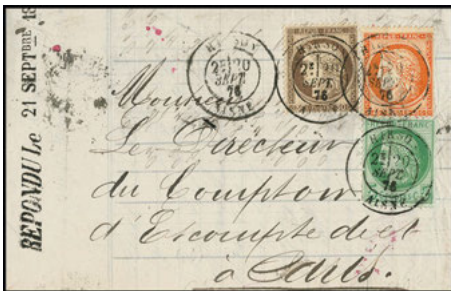 REPONDU Le 21 SEPTBRE 18
HIRSON
2E 20
SEPT
76
AISNE
REPUB. FRANC.
HIRSON
2E 20
SEPT
76
AISNE
HIRSON
2E 20
SEPT.
76
AISNE
Monsieur
Le Directeur
du Comptoir
d'Escompte de et
à Paris.